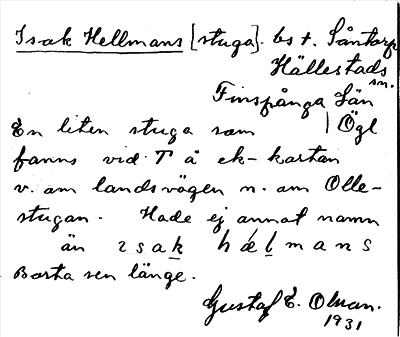 Isak Hellmans [stuga]. bst. Såntorp
Hällestads
sn.
Finspånga Län
En liten stuga som | Ögl
fanns vid T å ek-kartan
v. om landsvägen n. om Olle-
stugan. Hade ej annat namn
än isak hælmans
Borta sen länge.
Gustaf E. Olman.
1931